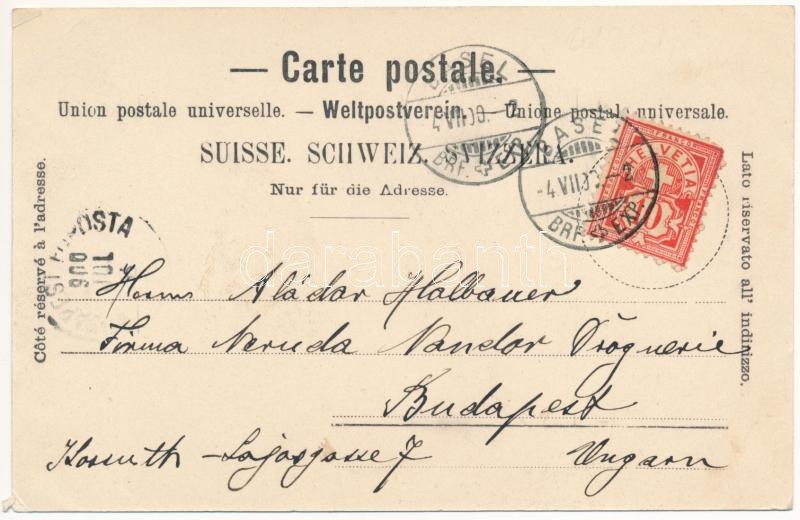 — Carte postale. —
Union postale universelle. — Weltpostverein. — Unione postale universale.
SUISSE. SCHWEIZ. SVIZZERA.
Nur für die Adresse.
Côté réservé à l'adresse.
Lato riservato all' indirizzo.
BASEL
4 VII 00
BRF. EXP.
BASEL
-4 VII 00 2
BRF. EXP.
FRANCO
HELVETIA
10
POSTA
Herrn Aladár Halbauer
Firma Neruda Nandor Drognerie
Budapest
Kossuth-Lajosgasse 7 Ungarn
darabanth